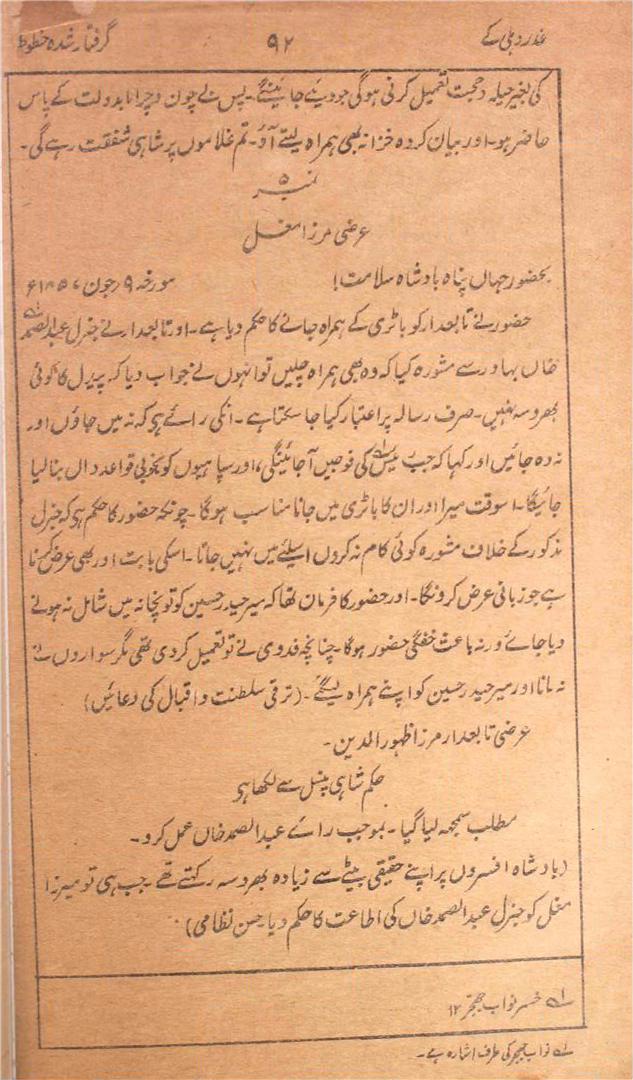 غدر دہلی کے ۹۲ گرفتار شدہ خطوط
کی بغیر حیلہ و حجت تعمیل کرنی ہوگی جو دیئے جائینگے۔ پس بے چون و چرا مابدولت کے پاس
حاضر ہو۔ اور بیان کردہ خزانہ بھی ہمراہ لیتے آؤ۔ تم غلاموں پر شاہی شفقت رہے گی۔
نمبر ۵
عرضی مرزا مغل
بحضور جہاں پناہ بادشاہ سلامت! مورخہ ۹ جون ۱۸۵۷ء
حضور نے تابعدار کو باٹری کے ہمراہ جانے کا حکم دیا ہے۔ اور تابعدار نے جنرل عبدالصمد
خاں بہادر سے مشورہ کیا کہ وہ بھی ہمراہ چلیں تو انہوں نے جواب دیا کہ پیدل کا کوئی
بھروسہ نہیں۔ صرف رسالہ پر اعتبار کیا جا سکتا ہے۔ انکی رائے ہی کہ نہ میں جاؤں اور
نہ وہ جائیں اور کہا کہ جب کی فوجیں آجائینگی، اور سپاہیوں کو بخوبی قواعد داں بنا لیا
جائیگا۔ اسوقت میرا اور ان کا باٹری میں جانا مناسب ہوگا۔ چونکہ حضور کا حکم ہی کہ جنرل
مذکور کے خلاف مشورہ کوئی کام نہ کروں اسلئے میں نہیں جاتا۔ اسکی بابت اور بھی عرض کرنا
ہے جو زبانی عرض کرونگا۔ اور حضور کا فرمان تھا کہ میر حیدر حسین کو توپخانہ میں شامل نہ ہونے
دیا جائے ورنہ باعث خفگی حضور ہوگا۔ چنانچہ فدوی نے تو تعمیل کر دی تھی مگر سواروں نے
نہ مانا اور میر حیدر حسین کو اپنے ہمراہ لیگئے۔ (ترقی سلطنت و اقبال کی دعائیں)
عرضی تابعدار مرزا ظہور الدین۔
حکم شاہی پنسل سے لکھا ہو
مطلب سمجھ لیا گیا۔ بموجب رائے عبدالصمد خاں عمل کرو۔
(بادشاہ افسروں پر اپنے حقیقی بیٹے سے زیادہ بھروسہ رکھتے تھے جب ہی تو میرزا
مغل کو جنرل عبدالصمد خاں کی اطاعت کا حکم دیا۔ حسن نظامی)
۱؎ خسر نواب جھجر ۱۲
۱؎ نواب جھجر کی طرف اشارہ ہے۔